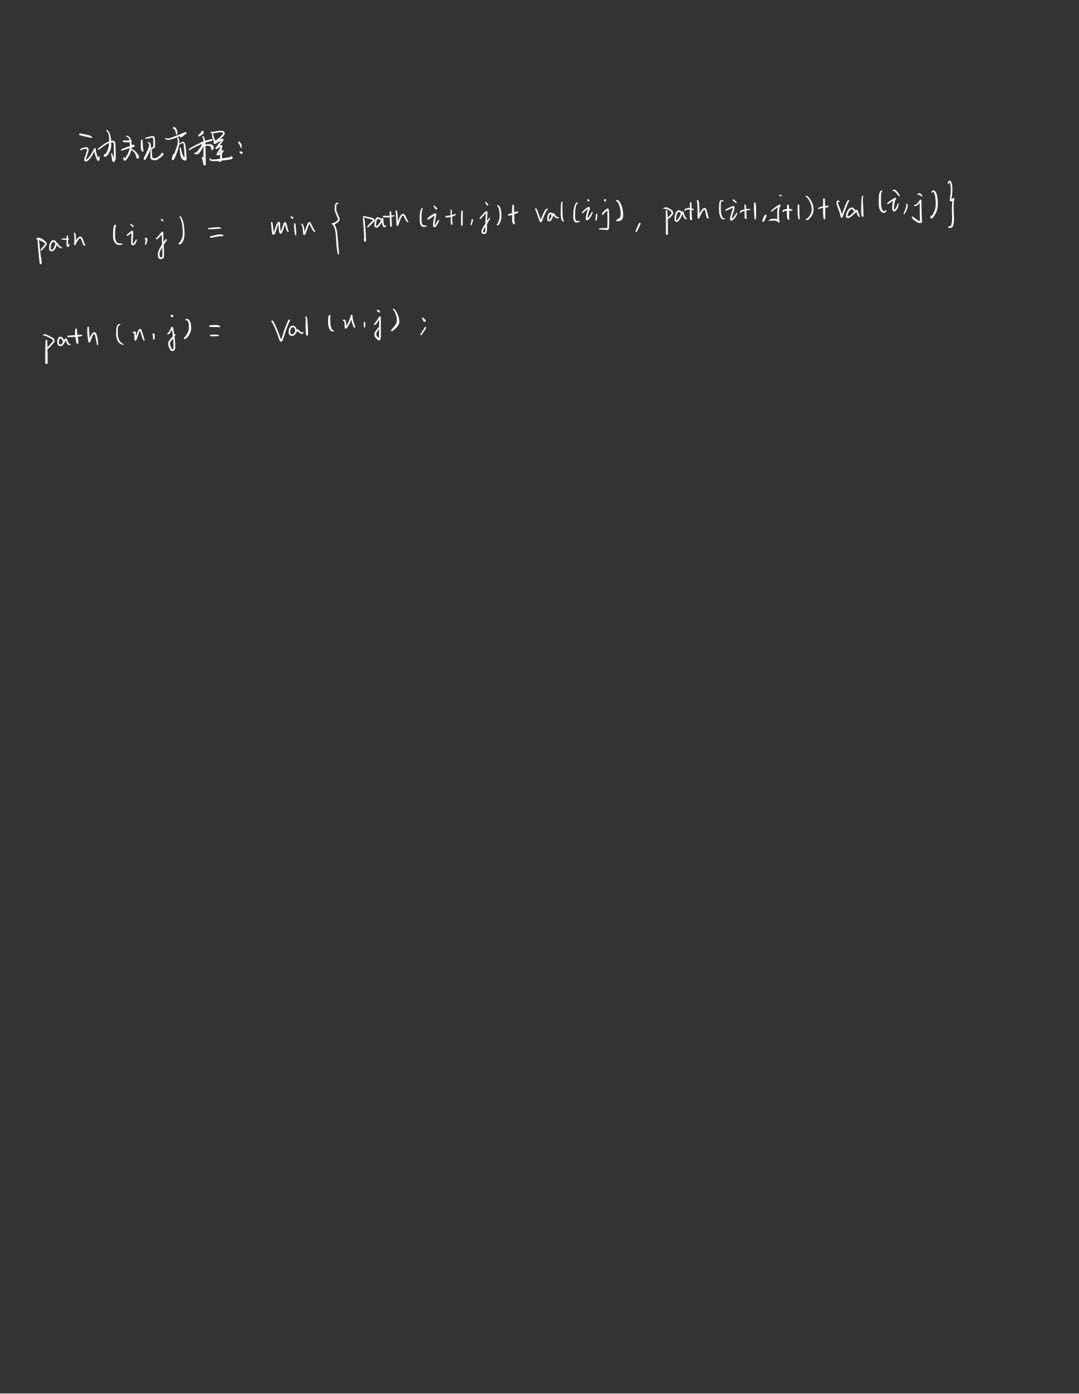 动规方程:
path (i,j) = min { path (i+1,j)+ val(i,j), path (i+1,j+1)+Val (i,j)}
path (n,j) = Val (n,j) ;